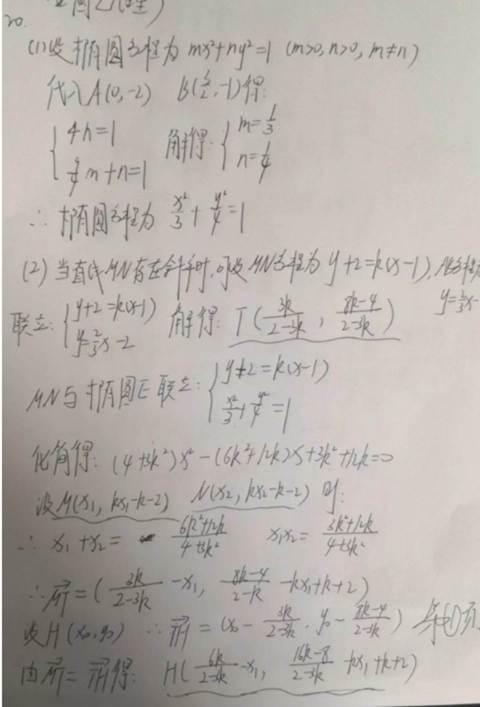 20.
(1) 设椭圆方程为 mx²+ny²=1 (m>0, n>0, m≠n)
代入A(0,-2) B(3/2,-1)得:
{4n=1 9/4m+n=1 解得: {m=1/3 n=1/4
∴ 椭圆方程为 x²/3+y²/4=1
(2) 当直线MN存在斜率时,可设MN方程为 y+2=k(x-1),
联立: {y+2=k(x-1) y=2/3x-2 解得: T(3k/2-3k, 8k-4/2-3k)
MN与椭圆E联立: {y+2=k(x-1) x²/3+y²/4=1
化简得: (4+3k²)x²-(6k²+12k)x+3k²+12k=0
设M(x₁, kx₁-k-2) N(x₂, kx₂-k-2) 则:
∴ x₁+x₂= 6k²+12k/4+3k² x₁x₂= 3k²+12k/4+3k²
=(3k/2-3k -x₁, 8k-4/2-k -kx₁+k+2)
设H(x₀,y₀) ∴ =(x₀- 3k/2-3k, y₀- 8k-4/2-k)
得: H(6k/2-3k -x₁, 16k-8/2-3k -kx₁+k+2)